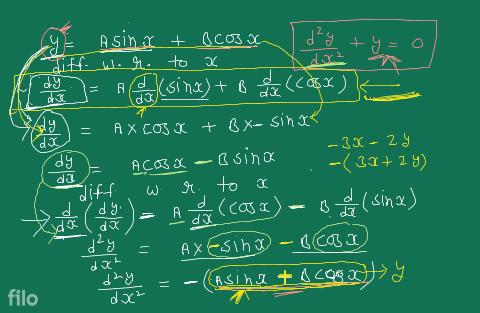 y = A sin x + B cos x
d²y/dx² + y = 0
diff. w. r. to x
dy/dx = A d/dx (sin x) + B d/dx (cos x)
dy/dx = A x cos x + B x - sin x
-3x - 2y
-(3x + 2y)
dy/dx = A cos x - B sin x
diff. w. r. to x
d/dx (dy/dx) = A d/dx (cos x) - B d/dx (sin x)
d²y/dx² = A x - sin x - B cos x
d²y/dx² = -(A sin x + B cos x) → y
filo